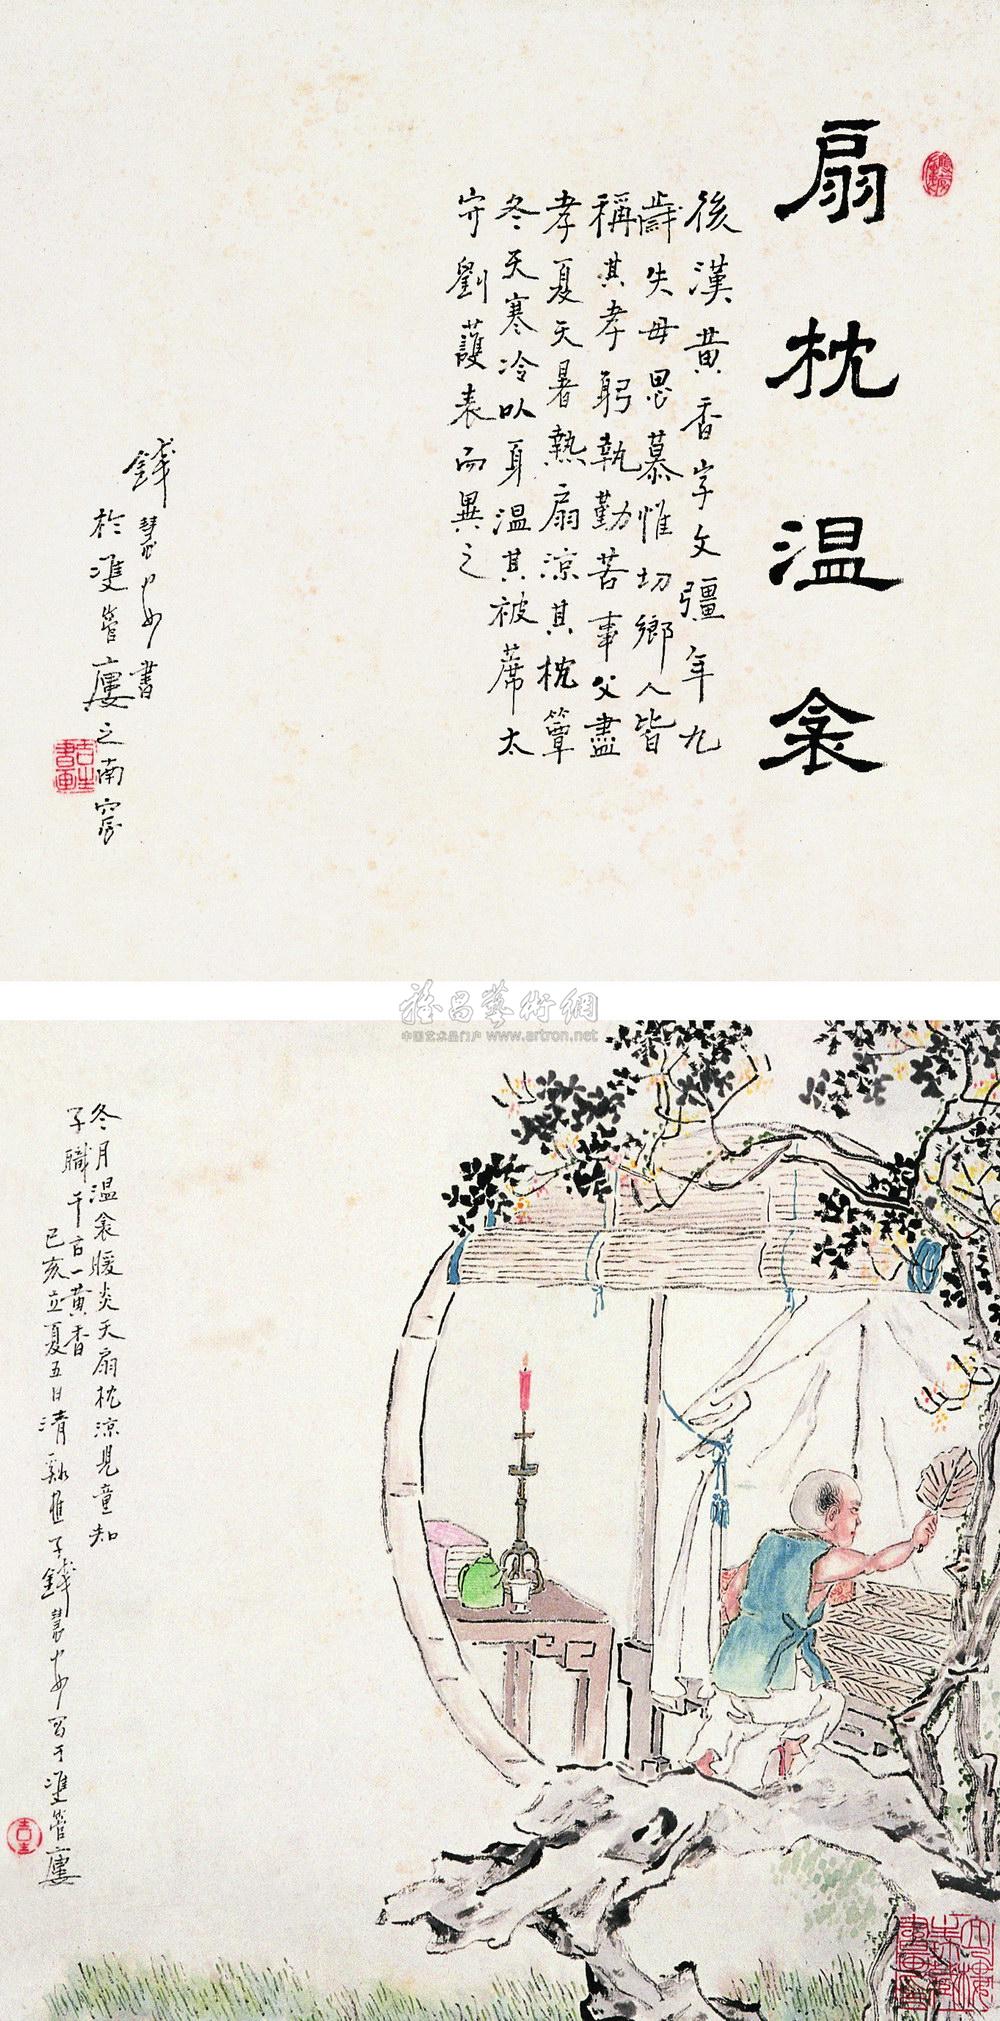 扇枕溫衾
後漢黄香字文彊年九
歲失母思慕惟切鄉人皆
稱其孝躬執勤苦事父盡
孝夏天暑熱扇涼其枕簟
冬天寒冷以身溫其被蓆太
守劉護表而異之
錢慧安書
於雙管廔之南窗
吉生書画
雅昌藝術網
中国艺术品门户 www.artron.net
冬月溫衾暖炎天扇枕涼兒童知
子職千古一黄香
己亥立夏五日清谿樵子錢慧安写于雙管廔
吉生